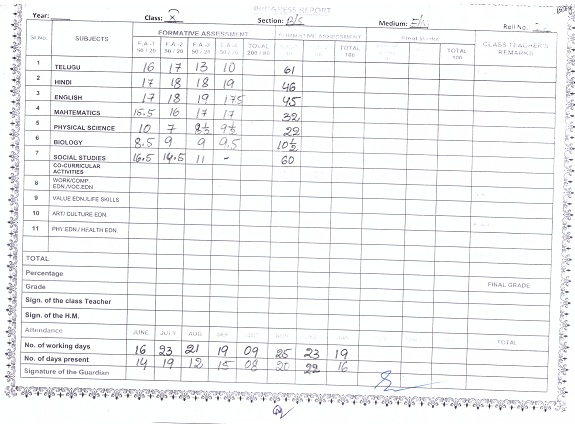 PROGRESS REPORT
Year: Class: X Section: B/C Medium: E/M Roll No.
Sr.No. SUBJECTS FORMATIVE ASSESSMENT SUMMATIVE ASSESSMENT Final Marks CLASS TEACHER'S REMARKS
F.A-1 50 / 20 F.A-2 50 / 20 F.A-3 50 / 20 F.A-4 50 / 20 TOTAL 200 / 80 TOTAL 100 TOTAL 100
1 TELUGU 16 17 13 10 61
2 HINDI 17 18 18 19 46
3 ENGLISH 17 18 19 17.5 45
4 MAHTEMATICS 15.5 16 17 17 32
5 PHYSICAL SCIENCE 10 7 8½ 9½ 22
6 BIOLOGY 8.5 9 9 9.5 10½
7 SOCIAL STUDIES 16.5 14.5 11 - 60
CO-CURRICULAR ACTIVITIES
8 WORK/COMP. EDN./VOC.EDN
9 VALUE EDN./LIFE SKILLS
10 ART/ CULTURE EDN.
11 PHY.EDN / HEALTH EDN.
TOTAL
Percentage
Grade FINAL GRADE
Sign. of the class Teacher
Sign. of the H.M.
Attendance JUNE JULY AUG SEP OCT NOV DEC JAN TOTAL
No. of working days 16 23 21 19 09 25 23 19
No. of days present 14 19 12 15 08 20 22 16
Signature of the Guardian